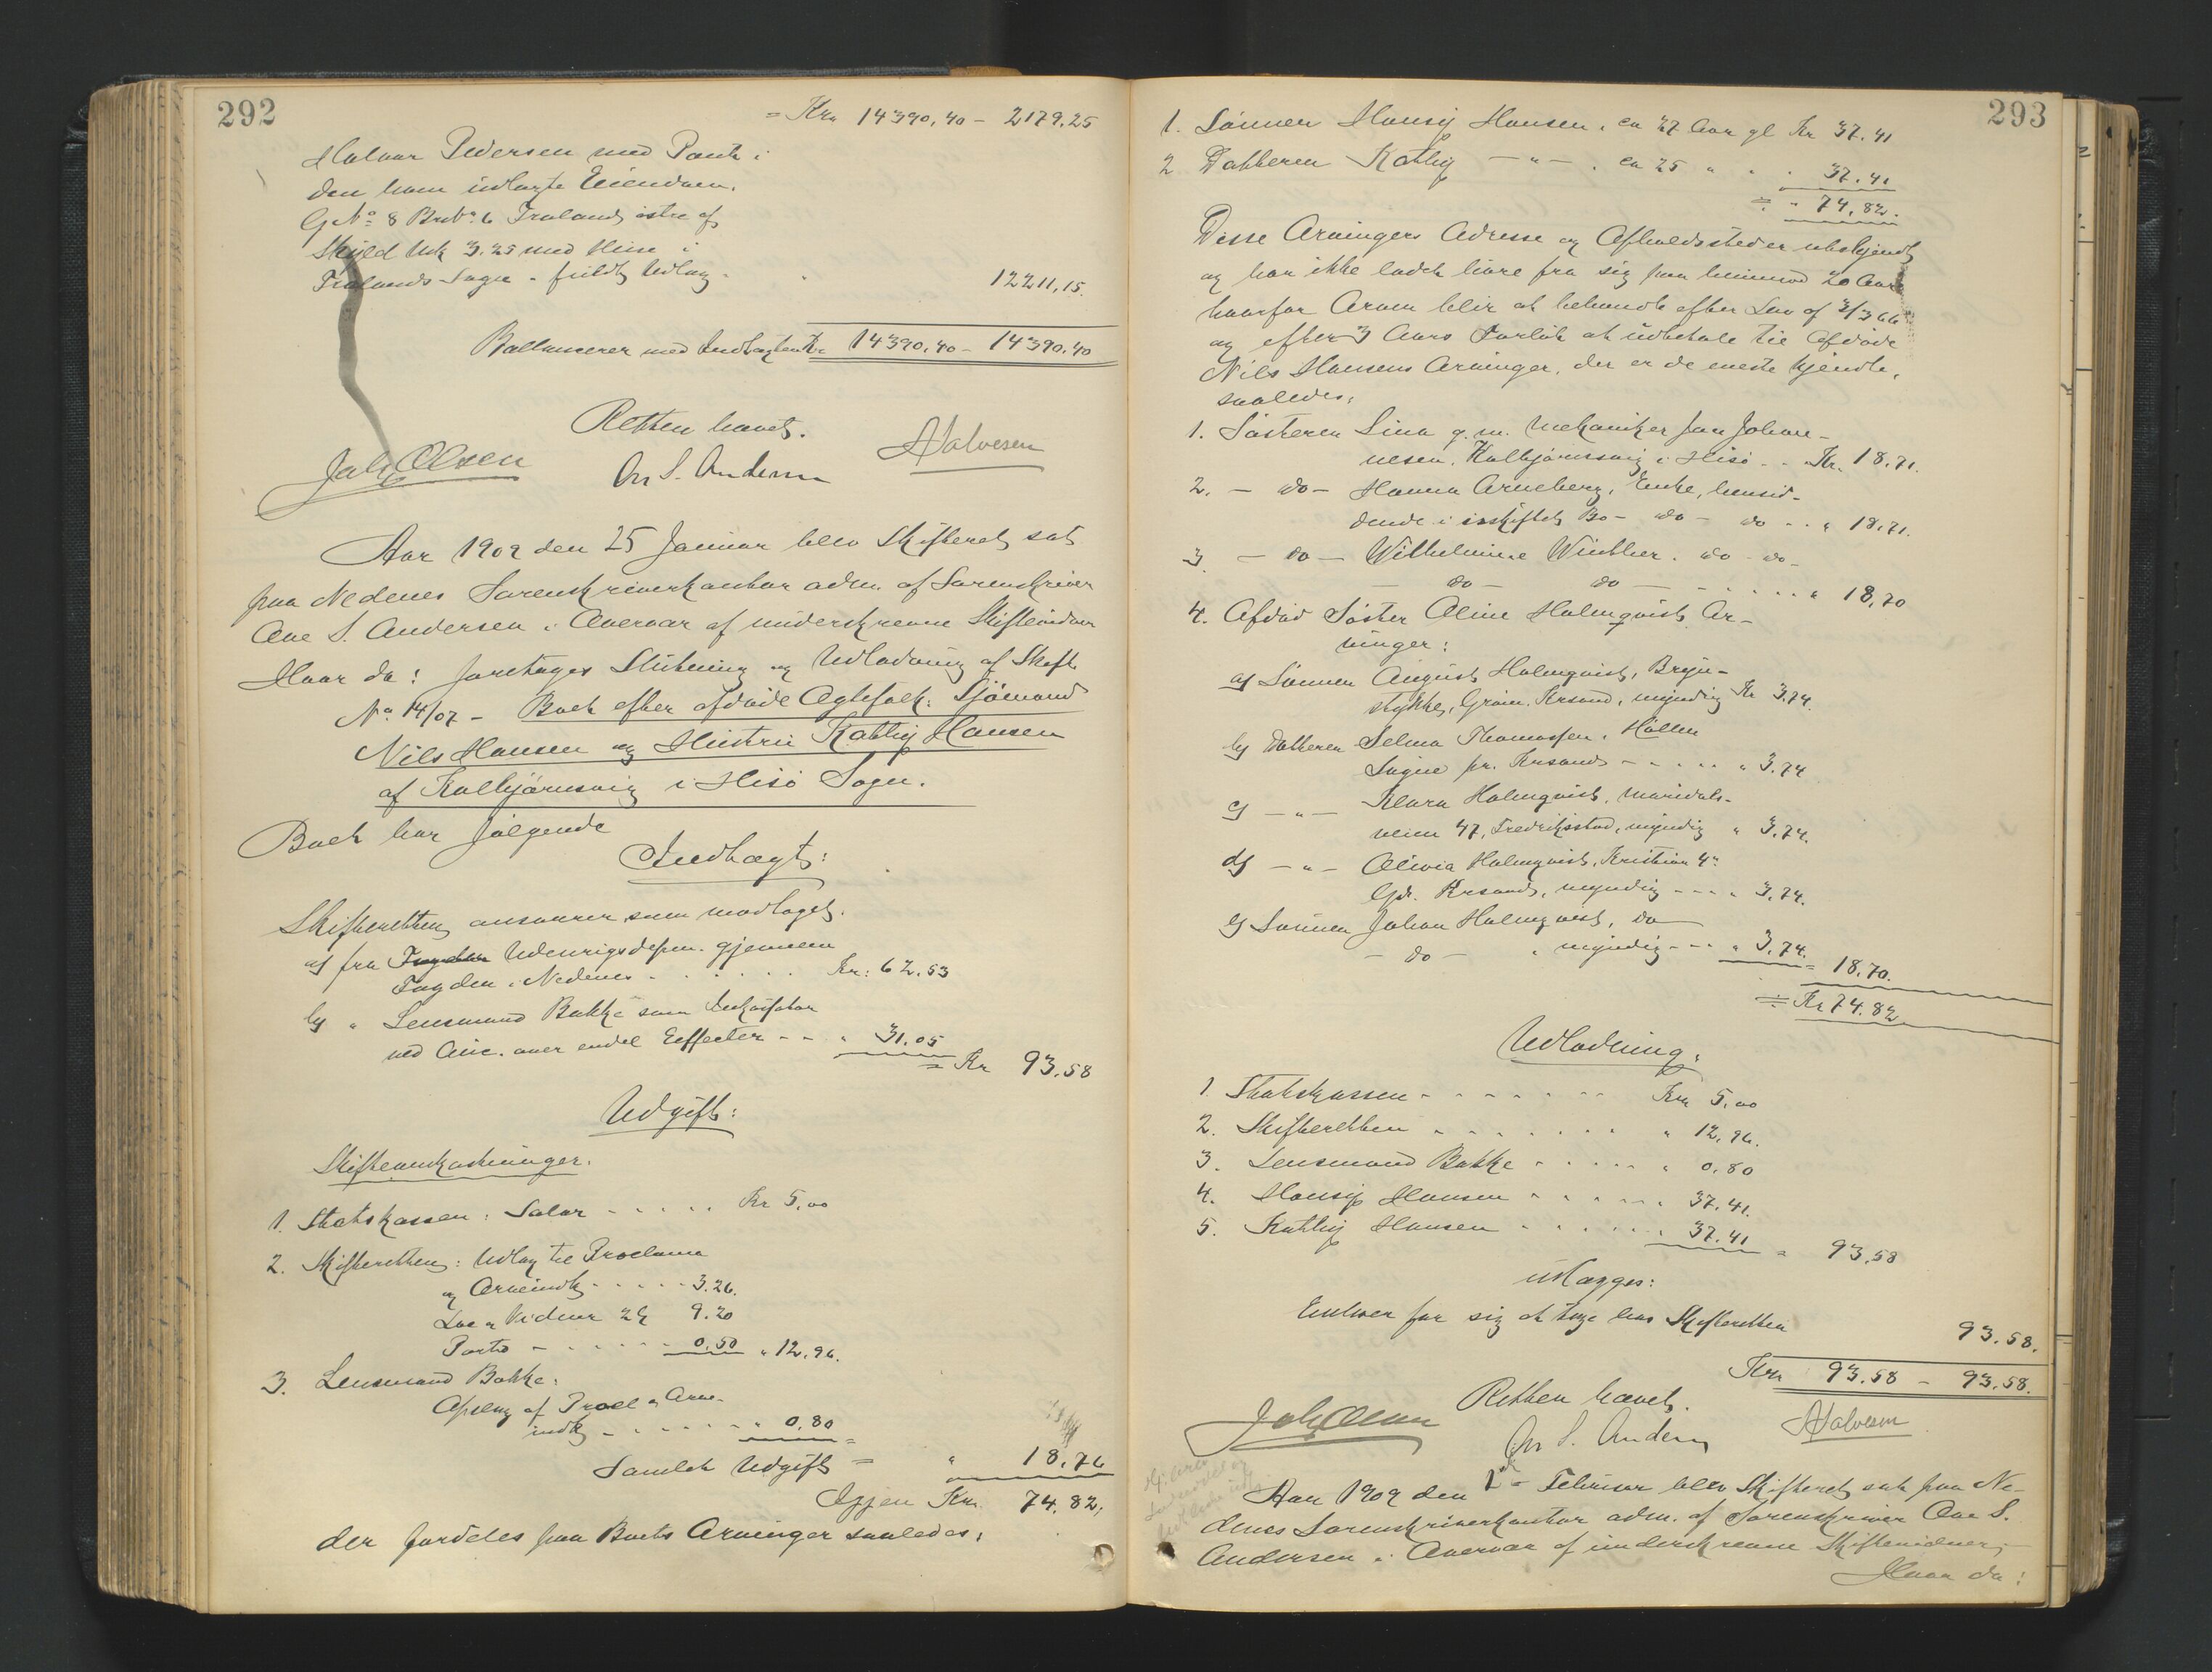 292
= Kr. 14390,40 - 2179,25
Halvor Pedersen mod Pant i
den ham udlagte Eiendom,
G.No. 8 Br.No. 6 Froland østre af
Skyld Mk 3.25 med Huse i
Frolands Sogn - fuldt Udlæg -
12211,15.
Ballancerer med Indtægten Kr. 14390,40 - 14390,40
Retten hævet.
Joh Olsen
Ove S. Andersen
Halvorsen
Aar 1909 den 25 Januar blev Skifteret sat
paa Nedenes Sorenskriverkontor adm. af Sorenskriver
Ove S. Andersen i Overvær af underskrevne Skiftevidner
Hvor da: foretoges Slutning og Udlodning af Skifte
No. 14/07 - Boet efter afdøde Ægtefolk: Sjømand
Nils Hansen og Hustru Kathy Hansen
af Kolbjørnsvig i Hisø Sogn.
Boet har følgende
Indtægt:
Skifteretten ansvarer som modtaget.
a) fra Fogden Udenrigsdepm. gjennem
Fogden i Nedenes - - - - - Kr: 62.53
b) " Lensmand Bakke som Inkassator
ved Auc. over endel Effecter - - " 31.05
= Kr 93.58
Udgift:
Skifteomkostninger.
1. Statskassen: Salær - - - - Kr 5,00
2. Skifteretten: Udlæg til Proclama
og Arveindk. - - - - 3.26.
Lov. Vidner 9.20
Porto - - - - - 0.50 " 12,96.
3. Lensmand Bakke:
Opslag af Procl. & Arve-
indk. - - - - - - " 0.80
Samlet Udgift = " 18.76
Igjen Kr. 74.82,
der fordeles paa Boets Arvinger saaledes:
293
1. Sønnen Hansy Hansen, ca 27 Aar gl Kr 37.41
2 Datteren Kathy - " - . ca 25 " " . 37.41
= " 74,82.
Disse Arvingers Adresse og Opholdssteder ubekjendt
og har ikke ladet høre fra sig paa henimod 20 Aar
hvorfor Arven blir at behandle efter Lov af 3/3 66
og efter 3 Aars Forløb at udbetale til Afdøde
Nils Hansens Arvinger, der er de eneste kjendte,
saaledes:
1. Søsteren Lina g.m. Mekaniker Jan Johan-
nesen, Kolbjørnsvig i Hisø - - Kr. 18,71.
2. - do - Hanna Arneberg, Enke, hensid-
dende i uskiftet Bo - do - do - - " 18,71.
3. - do - Wilhelmine Winther. do - do -
- do - do - - - - - " 18,70
4. Afdød Søster Oline Holmqvists Ar-
vinger:
a) Sønnen August Holmqvist, Bryn-
stykket, Grim, Krsand, myndig Kr 3.74.
b) Datteren Selma Thomassen, Høllen
Søgne pr. Krsand - - - - - " 3.74
c) - " - Klara Holmqvist,
47, Fredrikstad, myndig " 3.74.
d) - " - Olivia Holmqvist, Kristian 4"
Gd. Krsand, myndig - - - " 3.74.
e) Sønnen Johan Holmqvist, do
- do - " myndig - - - " 3.74. = 18,70.
= Kr 74.82
Udlodning.
1. Statskassen - - - - - - - Kr. 5,00
2. Skifteretten - - - - - - - " 12,96.
3. Lensmand Bakke - - - - - " 0,80
4. Hansy Hansen - - - - - - " 37.41.
5. Kathy Hansen - - - - - - " 37.41 = 93,58
Udlægges:
Enhver for sig at tage hos Skifteretten
93.58.
Kr. 93.58 - 93.58.
Retten hævet.
Joh Olsen
Ove S. Andersen
Halvorsen
Aar 1909 den 1 - Februar blev Skifteret sat paa Ne-
denes Sorenskriverkontor adm. af Sorenskriver Ove S.
Andersen i Overvær af underskrevne Skiftevidner;
Hvor da: